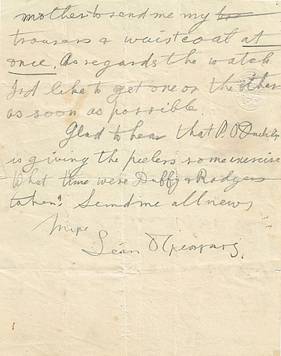 mother to send me my
trousers & waistcoat at
once. As regards the watch
I'd like to get one or the other
as soon as possible.
Glad to hear that P. O'
is giving the peelers some exercise
What time were Duffy & Rodgers
taken? Send me all news
Mise
Seán